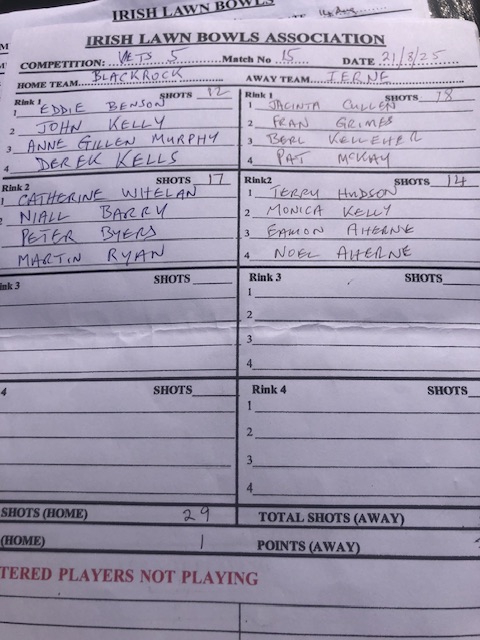 IRISH LAWN BOWLS
IRISH LAWN BOWLS ASSOCIATION
COMPETITION: VETS 5 Match No 15 DATE 21/8/25
HOME TEAM BLACKROCK AWAY TEAM IERNE
Rink 1 SHOTS 12 Rink 1 SHOTS 18
1 EDDIE BENSON 1 JACINTA CULLEN
2 JOHN KELLY 2 FRAN GRIMES
3 ANNE GILLEN MURPHY 3 BERL KELLEHER
4 DEREK KELLS 4 PAT McKAY
Rink 2 SHOTS 17 Rink2 SHOTS 14
1 CATHERINE WHELAN 1 TERRY HUDSON
2 NIALL BARRY 2 MONICA KELLY
PETER BYERS 3 EAMON AHERNE
MARTIN RYAN 4 NOEL AHERNE
ink 3 SHOTS Rink 3 SHOTS
1
2
3
4
4 SHOTS Rink 4 SHOTS
1
2
3
4
SHOTS (HOME) 29 TOTAL SHOTS (AWAY)
(HOME) 1 POINTS (AWAY)
TERED PLAYERS NOT PLAYING